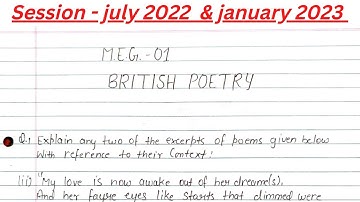 Session - july 2022 & january 2023
M.E.G.-01
BRITISH POETRY
Q.1 Explain any two of the excerpts of poems given below
With reference to their Context:
iii) "My love is now awake out of her dreame(s).
And her fayre eyes like starts that dimmed were